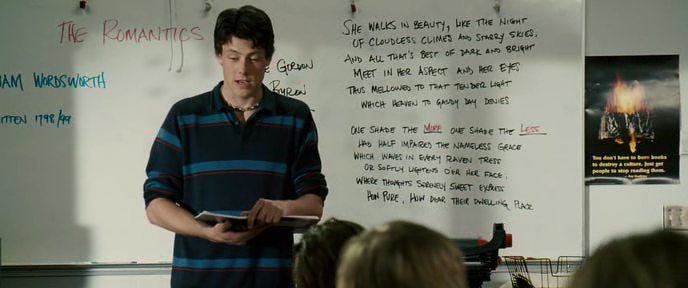 THE ROMANTICS
IAM WORDSWORTH
ITTEN 1798/99
E GORDON
BYRON
SHE WALKS IN BEAUTY, LIKE THE NIGHT
OF CLOUDLESS CLIMES AND STARRY SKIES;
AND ALL THAT'S BEST OF DARK AND BRIGHT
MEET IN HER ASPECT AND HER EYES
THUS MELLOWED TO THAT TENDER LIGHT
WHICH HEAVEN TO GAUDY DAY DENIES
ONE SHADE THE MORE ONE SHADE THE LESS
HAD HALF IMPAIRED THE NAMELESS GRACE
WHICH WAVES IN EVERY RAVEN TRESS
OR SOFTLY LIGHTENS O'ER HER FACE;
WHERE THOUGHTS SERENELY SWEET EXPRESS
HOW PURE, HOW DEAR THEIR DWELLING PLACE
You don't have to burn books
to destroy a culture. Just get
people to stop reading them.